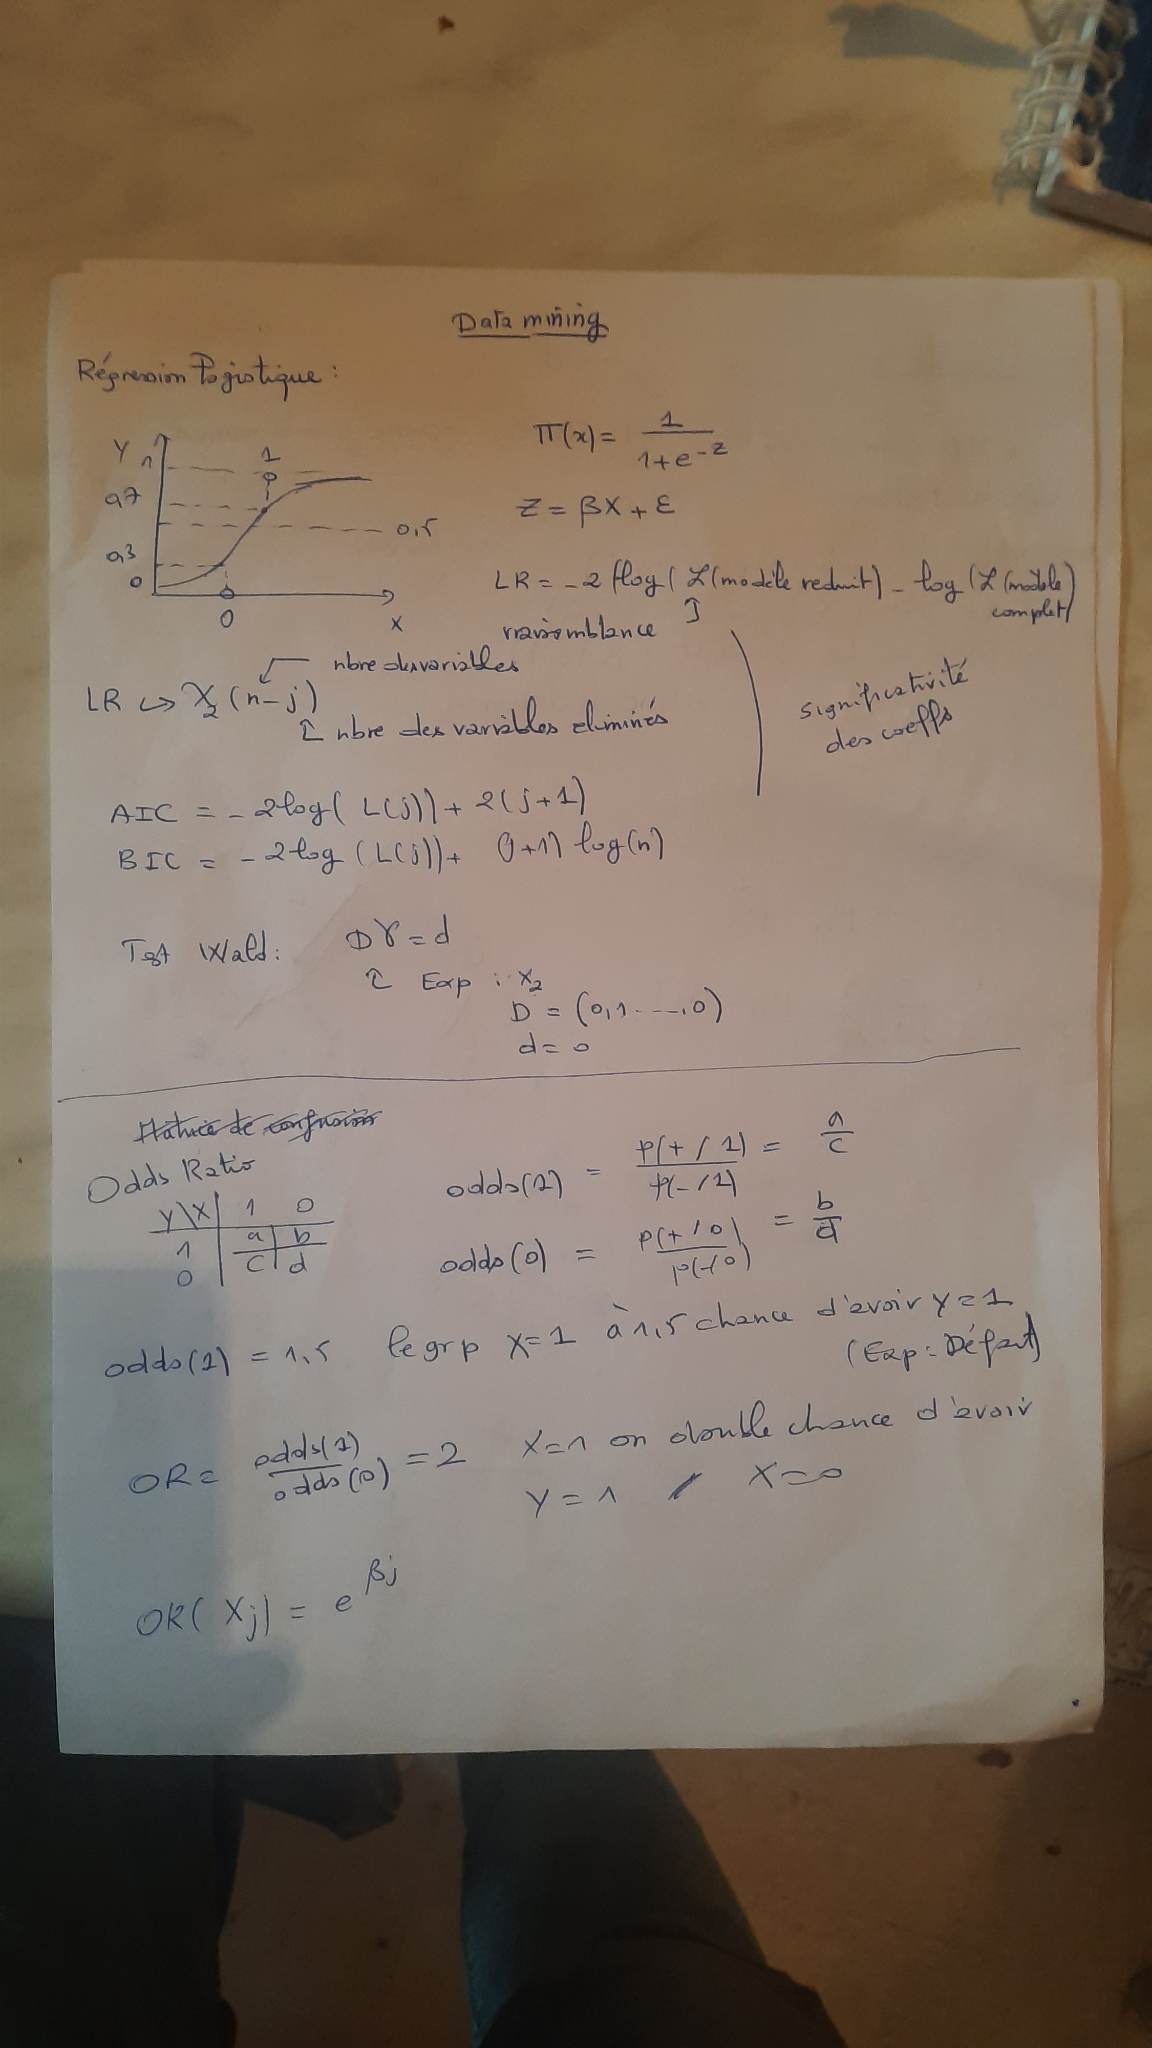 Data mining
Régression logistique :
π(x) = 1 / (1+e^-z)
Y
1
1
0,7
0,5
0,3
0
0
X
Z = βX + ε
LR = -2 (log( L(modèle reduit) - log (L (modèle complet)
vraisemblance
nbre des variables
LR ↪ χ2 (n-j)
nbre des variables eliminés
significativité
des coeffs
AIC = -2log( L(j)) + 2(j+1)
BIC = -2log (L(j)) + (j+1) log(n)
Test Wald : Dγ = d
Exp : X2
D = (0,1 ----, 0)
d = 0
Matrice de confusion
Odds Ratio
Y\X 1 0
1 a b
0 c d
odds(1) = p(+/1) / p(-/1) = a/c
odds(0) = p(+/0) / p(-/0) = b/d
odds(1) = 1,5 le grp X=1 à 1,5 chance d'avoir Y=1
(Exp : Défaut)
OR = odds(1) / odds(0) = 2 X=1 on double chance d'avoir
Y = 1 / X=0
OR( Xj) = e^βj